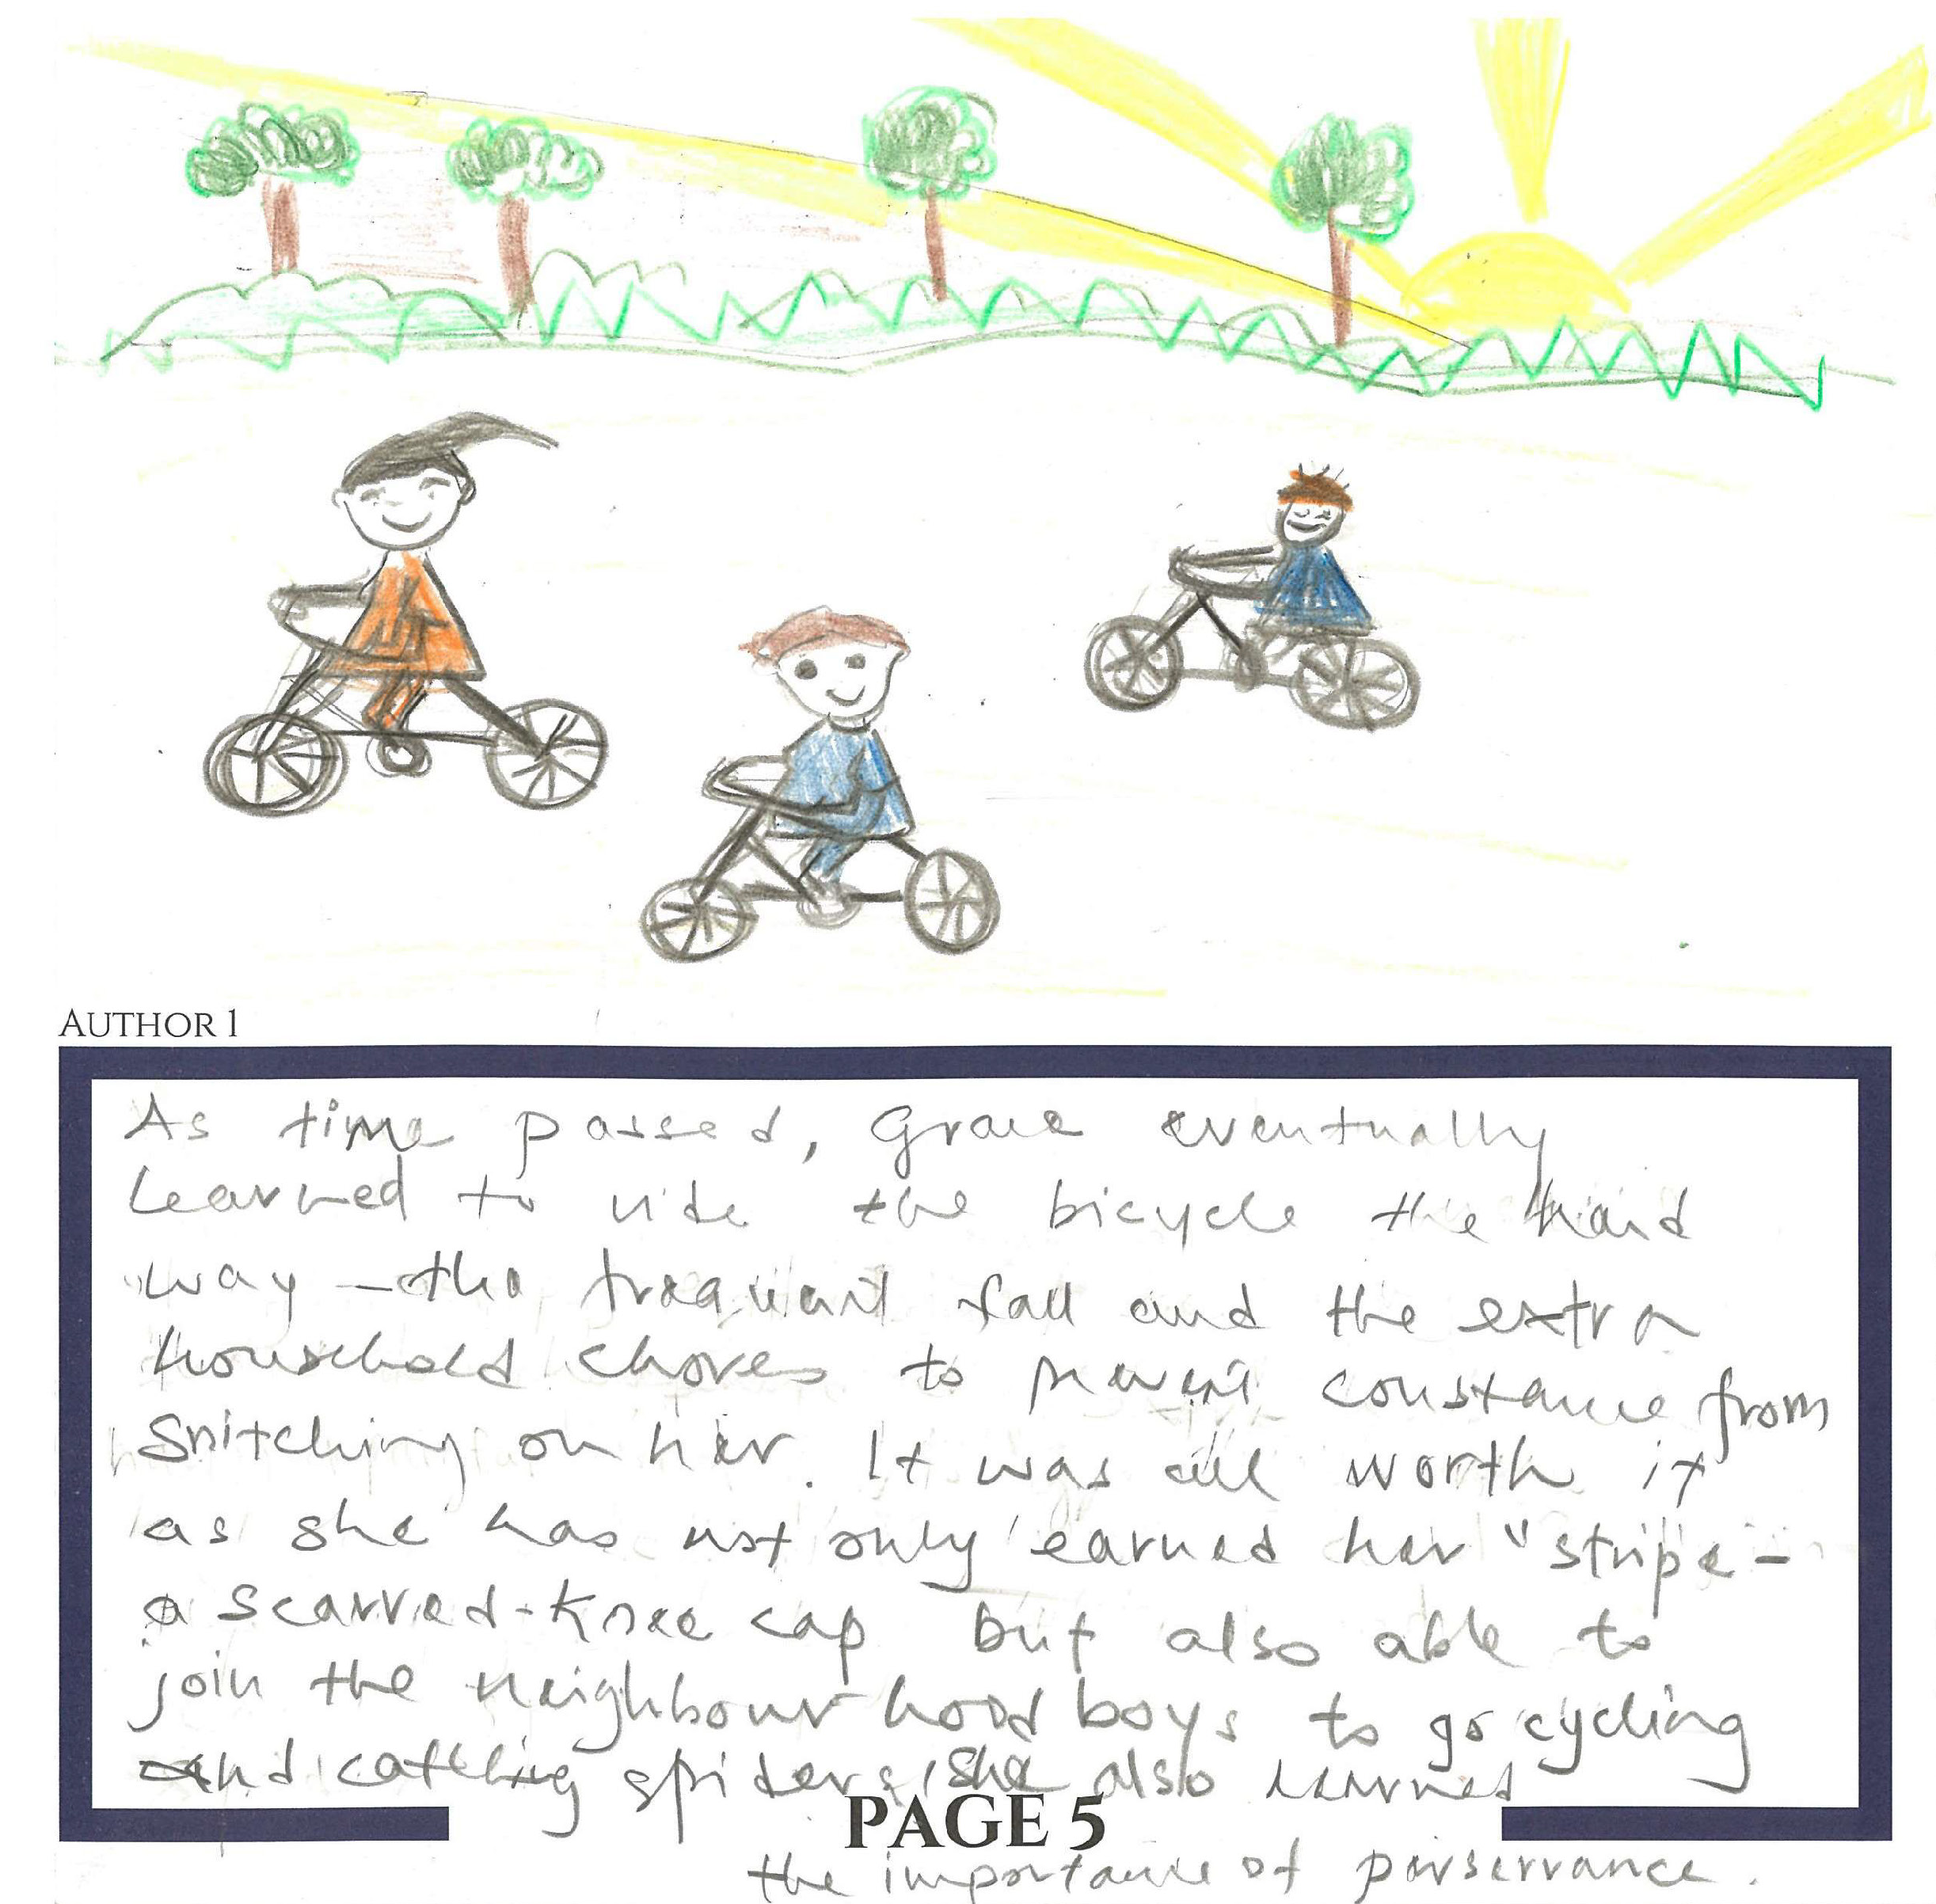 AUTHOR 1
As time passed, Grace eventually
learned to ride the bicycle the hard
way – the frequent fall and the extra
household chores to prevent constance from
Snitching on her. It was all worth it
as she has not only earned her "stripe –
a scarred-knee cap but also able to
join the neighbourhood boys to go cycling
and catching spiders, she also learned
PAGE 5
the importance of perserrance.